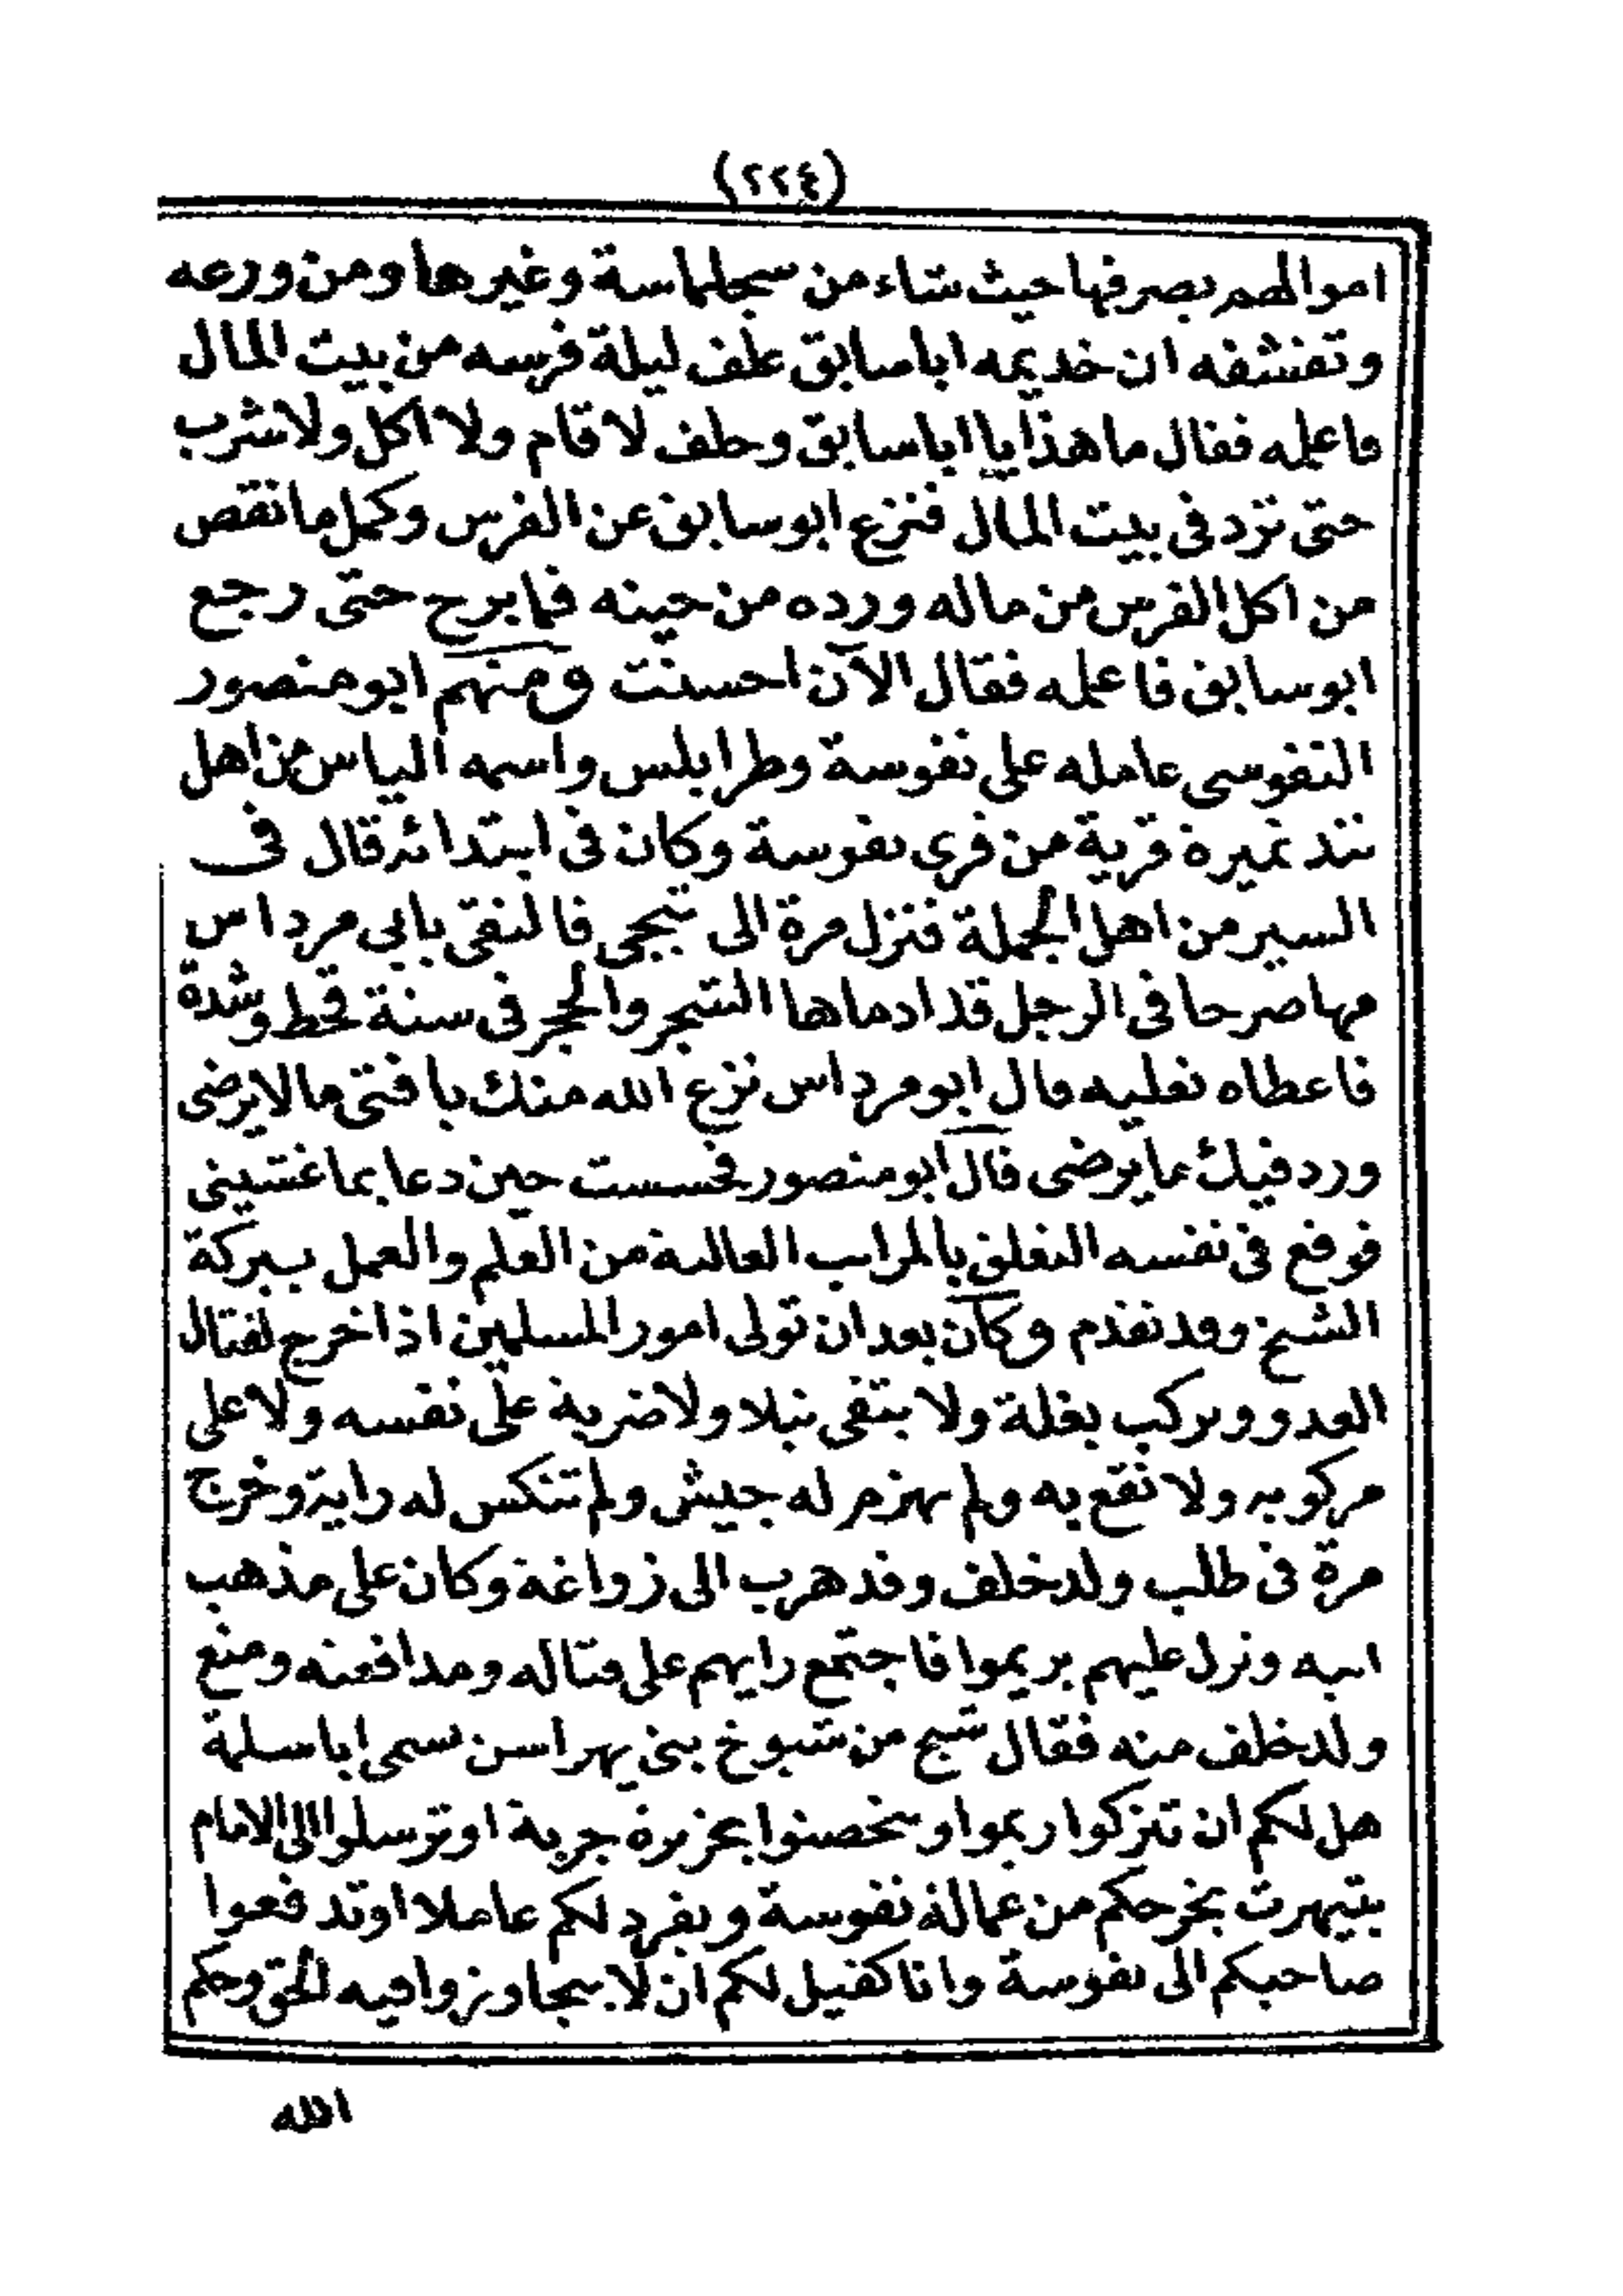 (٢٢٤)
اموالهم يصرفها حيث شاء من سجلماسة وغيرها ومن ورعه
وتقشفه ان خديمه اباسابق علف ليلة فرسه من بيت المال
فاعلمه فقال ما هذا يا اباسابق وحلف لا قام ولا اكل ولا شرب
حتى ترد فى بيت المال فنزع ابو سابق عن الفرس وكمل ما نقص
من اكل الفرس من ماله ورده من حينه فما برح حتى رجع
ابو سابق فاعلمه فقال الآن احسنت ومنهم ابو منصور
النفوسى عامله على نفوسة وطرابلس واسمه الياس من اهل
تندغيرة قرية من قرى نفوسة وكان فى ابتدائه قال فى
السير من اهل الجملة فنزل مرة الى فالتقى بابى مرداس
مهاصر حافى الرجل قد ادماها الشجر والحجر فى سنة قحط وشدة
فاعطاه نعليه قال ابو مرداس نزع الله منك يا فتى ما لا يرضى
ورد فيك ما يرضى قال ابو منصور فحسست حين دعا بما غشينى
فوقع فى نفسه التعلق بالمراتب العالية من العلم والعمل ببركة
الشيخ وقد تقدم وكان بعد ان تولى امور المسلمين اذا خرج لقتال
العدو ويركب بغلة ولا يتقى نبلا ولا ضربة على نفسه ولا على
مركوبه ولا تقع به ولم يهزم له جيش ولم تنكس له راية وخرج
مرة فى طلب ولد خلف وقد هرب الى زواغة وكان على مذهب
ابيه ونزل عليهم بريموا فاجتمع رايهم على قتاله ومدافعته ومنع
ولد خلف منه فقال شيخ من شيوخ بنى يهراسن يسمى اباسلمة
هل لكم ان تتركوا ريموا وتحصنوا بجزيرة جربة او ترسلوا الى الامام
بتيهرت يخرجكم من عمالة نفوسة ويفرد لكم عاملا او تدفعوا
صاحبكم الى نفوسة وانا كفيل لكم ان لا يتجاوزوا فيه الحق وحكم
الله